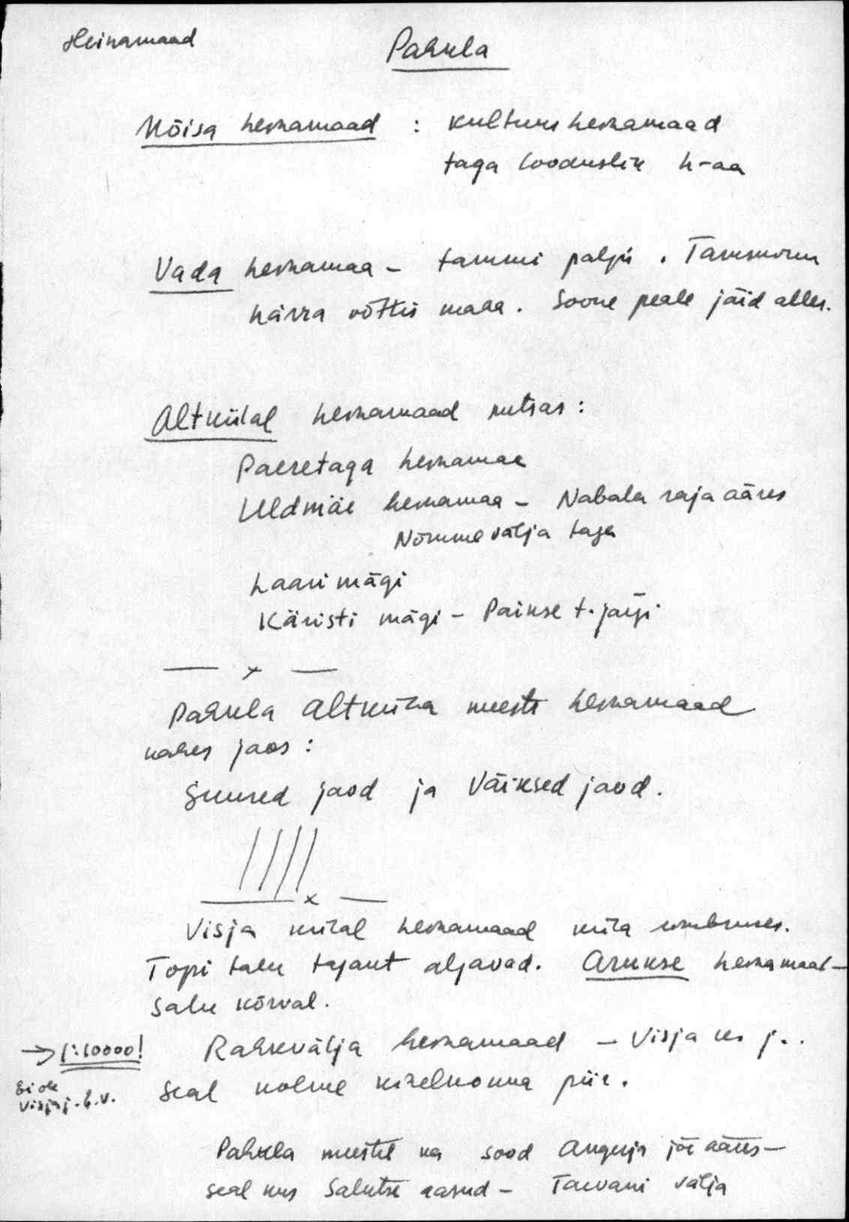 Heinamaad
Pahkla
Mõisa heinamaad : kultuurheinamaad
taga looduslik h-aa
Vada heinamaa – tammi palju. Tammonu
härra võttis maha. Soone peale jäid alles.
Altkülal heinamaad metsas:
Paeretaga heinamaa
Uldmäe heinamaa – Nabala raja ääres
Nõmmevälja taga
Laari mägi
Käristi mägi – Paikse t. järgi
— x —
Pahkla Altküla meeste heinamaad
kahes jaos:
Suured jaod ja Väiksed jaod.
— x —
Visja külal heinamaad küla ümbruses.
Topi talu tagant algavad. Arukse heinamaal –
Salu kõrval.
→ 1:10000! Rahkvälja heinamaad – Visja
Ei ole
Seal kolme kihelkonna piir.
Pahkla meestel ka sood Angerja jõe ääres –
seal kus Salutse aasud – Taevani välja